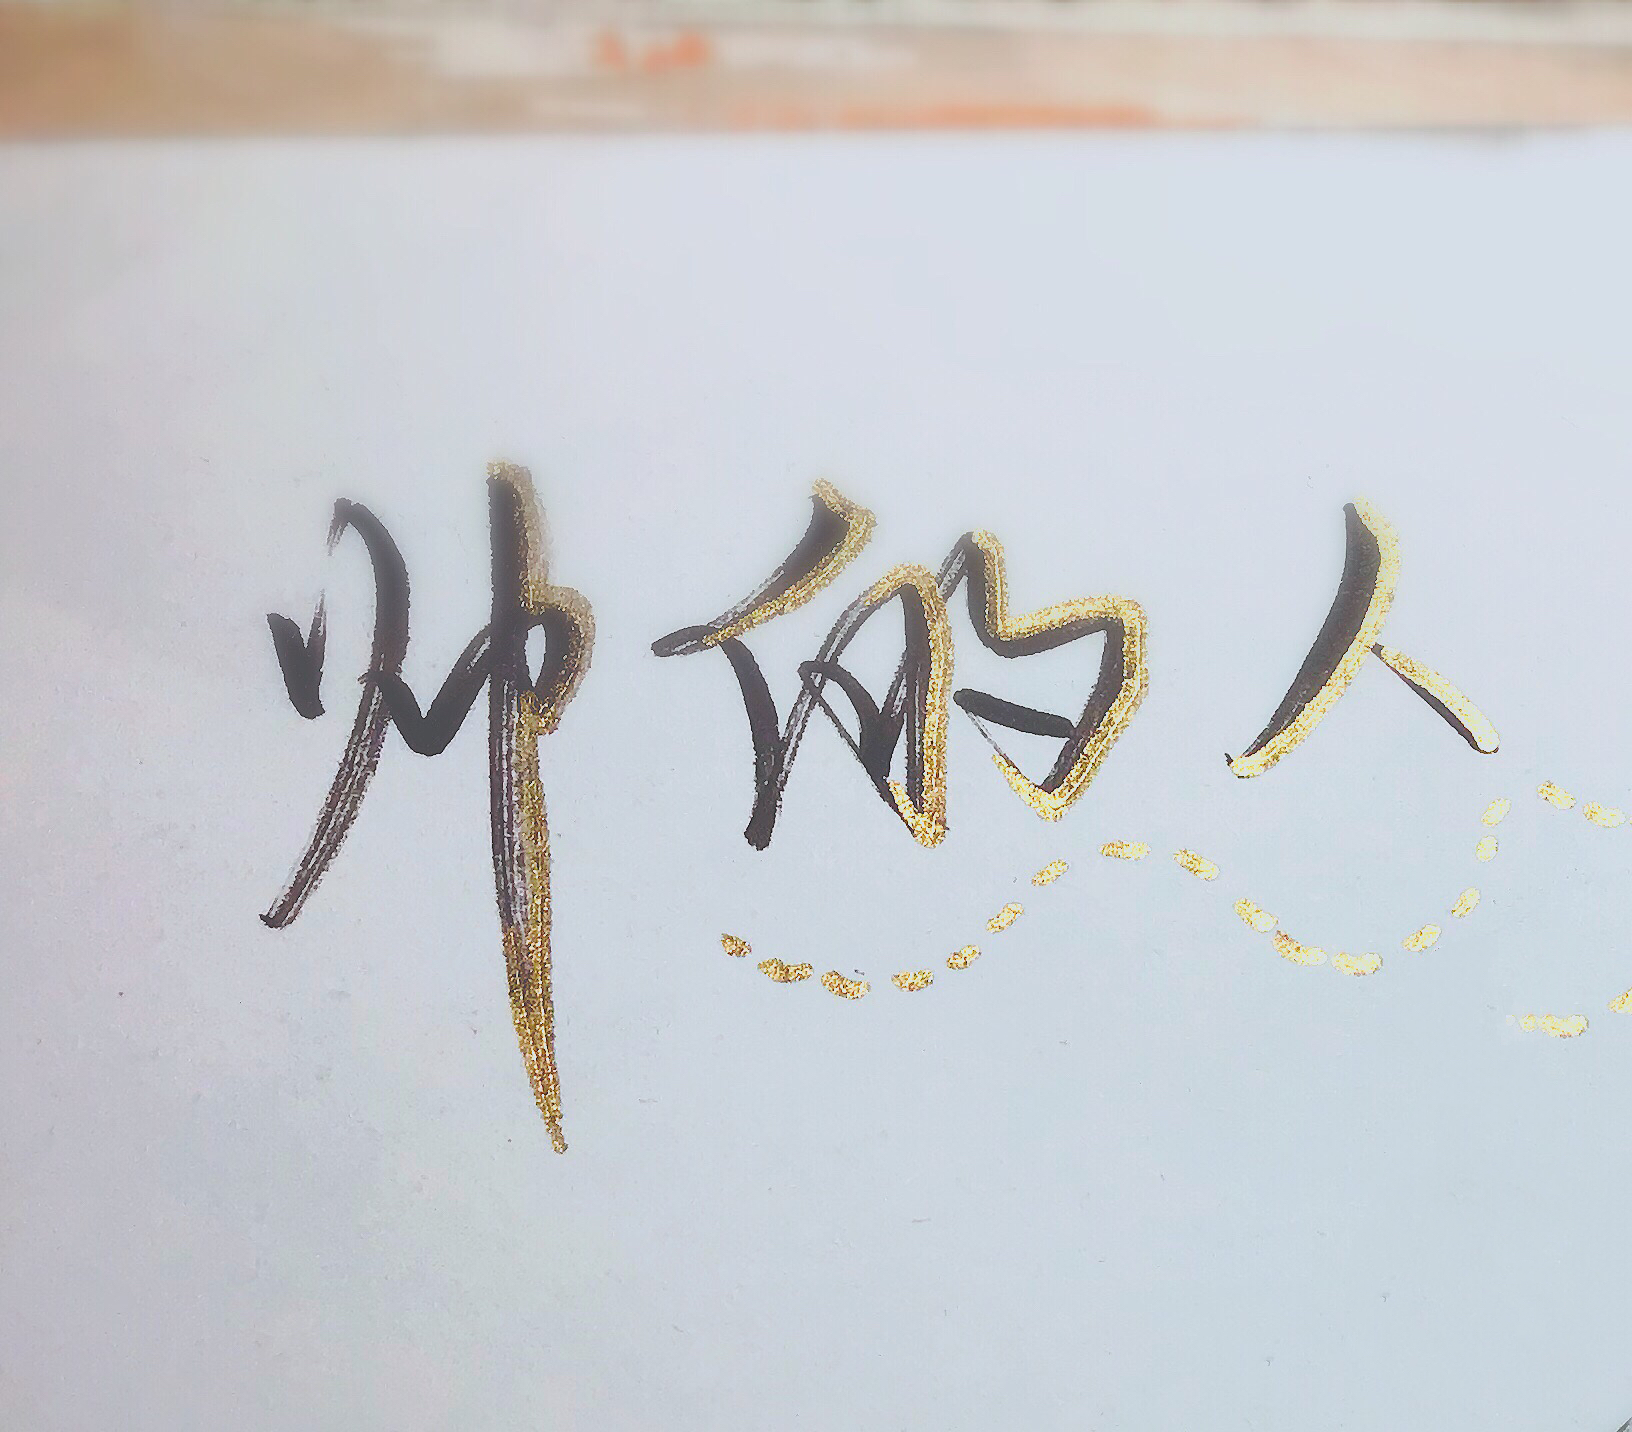 帅的人